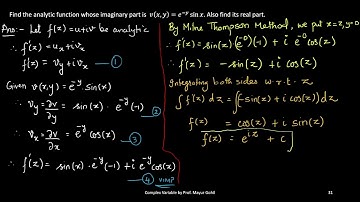 Find the analytic function whose imaginary part is v(x, y) = e^{-y} sin x. Also find its real part.
Ans:- Let f(z) = u+iv be analytic
∴ f'(z) = u_x + i v_x
f'(z) = v_y + i v_x — ①
Given v(x,y) = e^{-y} sin(x)
∴ v_y = ∂v/∂y = sin(x) · e^{-y} (-1)
②
∴ v_x = ∂v/∂x = e^{-y} cos(x)
③
∴ f'(z) = sin(x) · e^{-y} (-1) + i e^{-y} cos(x)
④ VIMP
By Milne Thompson Method, we put x=z, y=0
∴ f'(z) = sin(z) (e^{-0}) (-1) + i e^{-0} cos(z)
∴ f'(z) = - sin(z) + i cos(z)
Integrating both sides w.r.t. z
∫ f'(z) dz = ∫ (-sin(z) + i cos(z)) dz
f(z) = cos(z) + i sin(z)
f(z) = e^{iz} + c
Complex Variable by Prof. Mayur Gohil
31